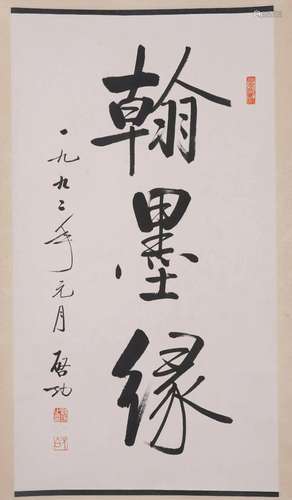 翰墨缘
一九九二年元月 启功